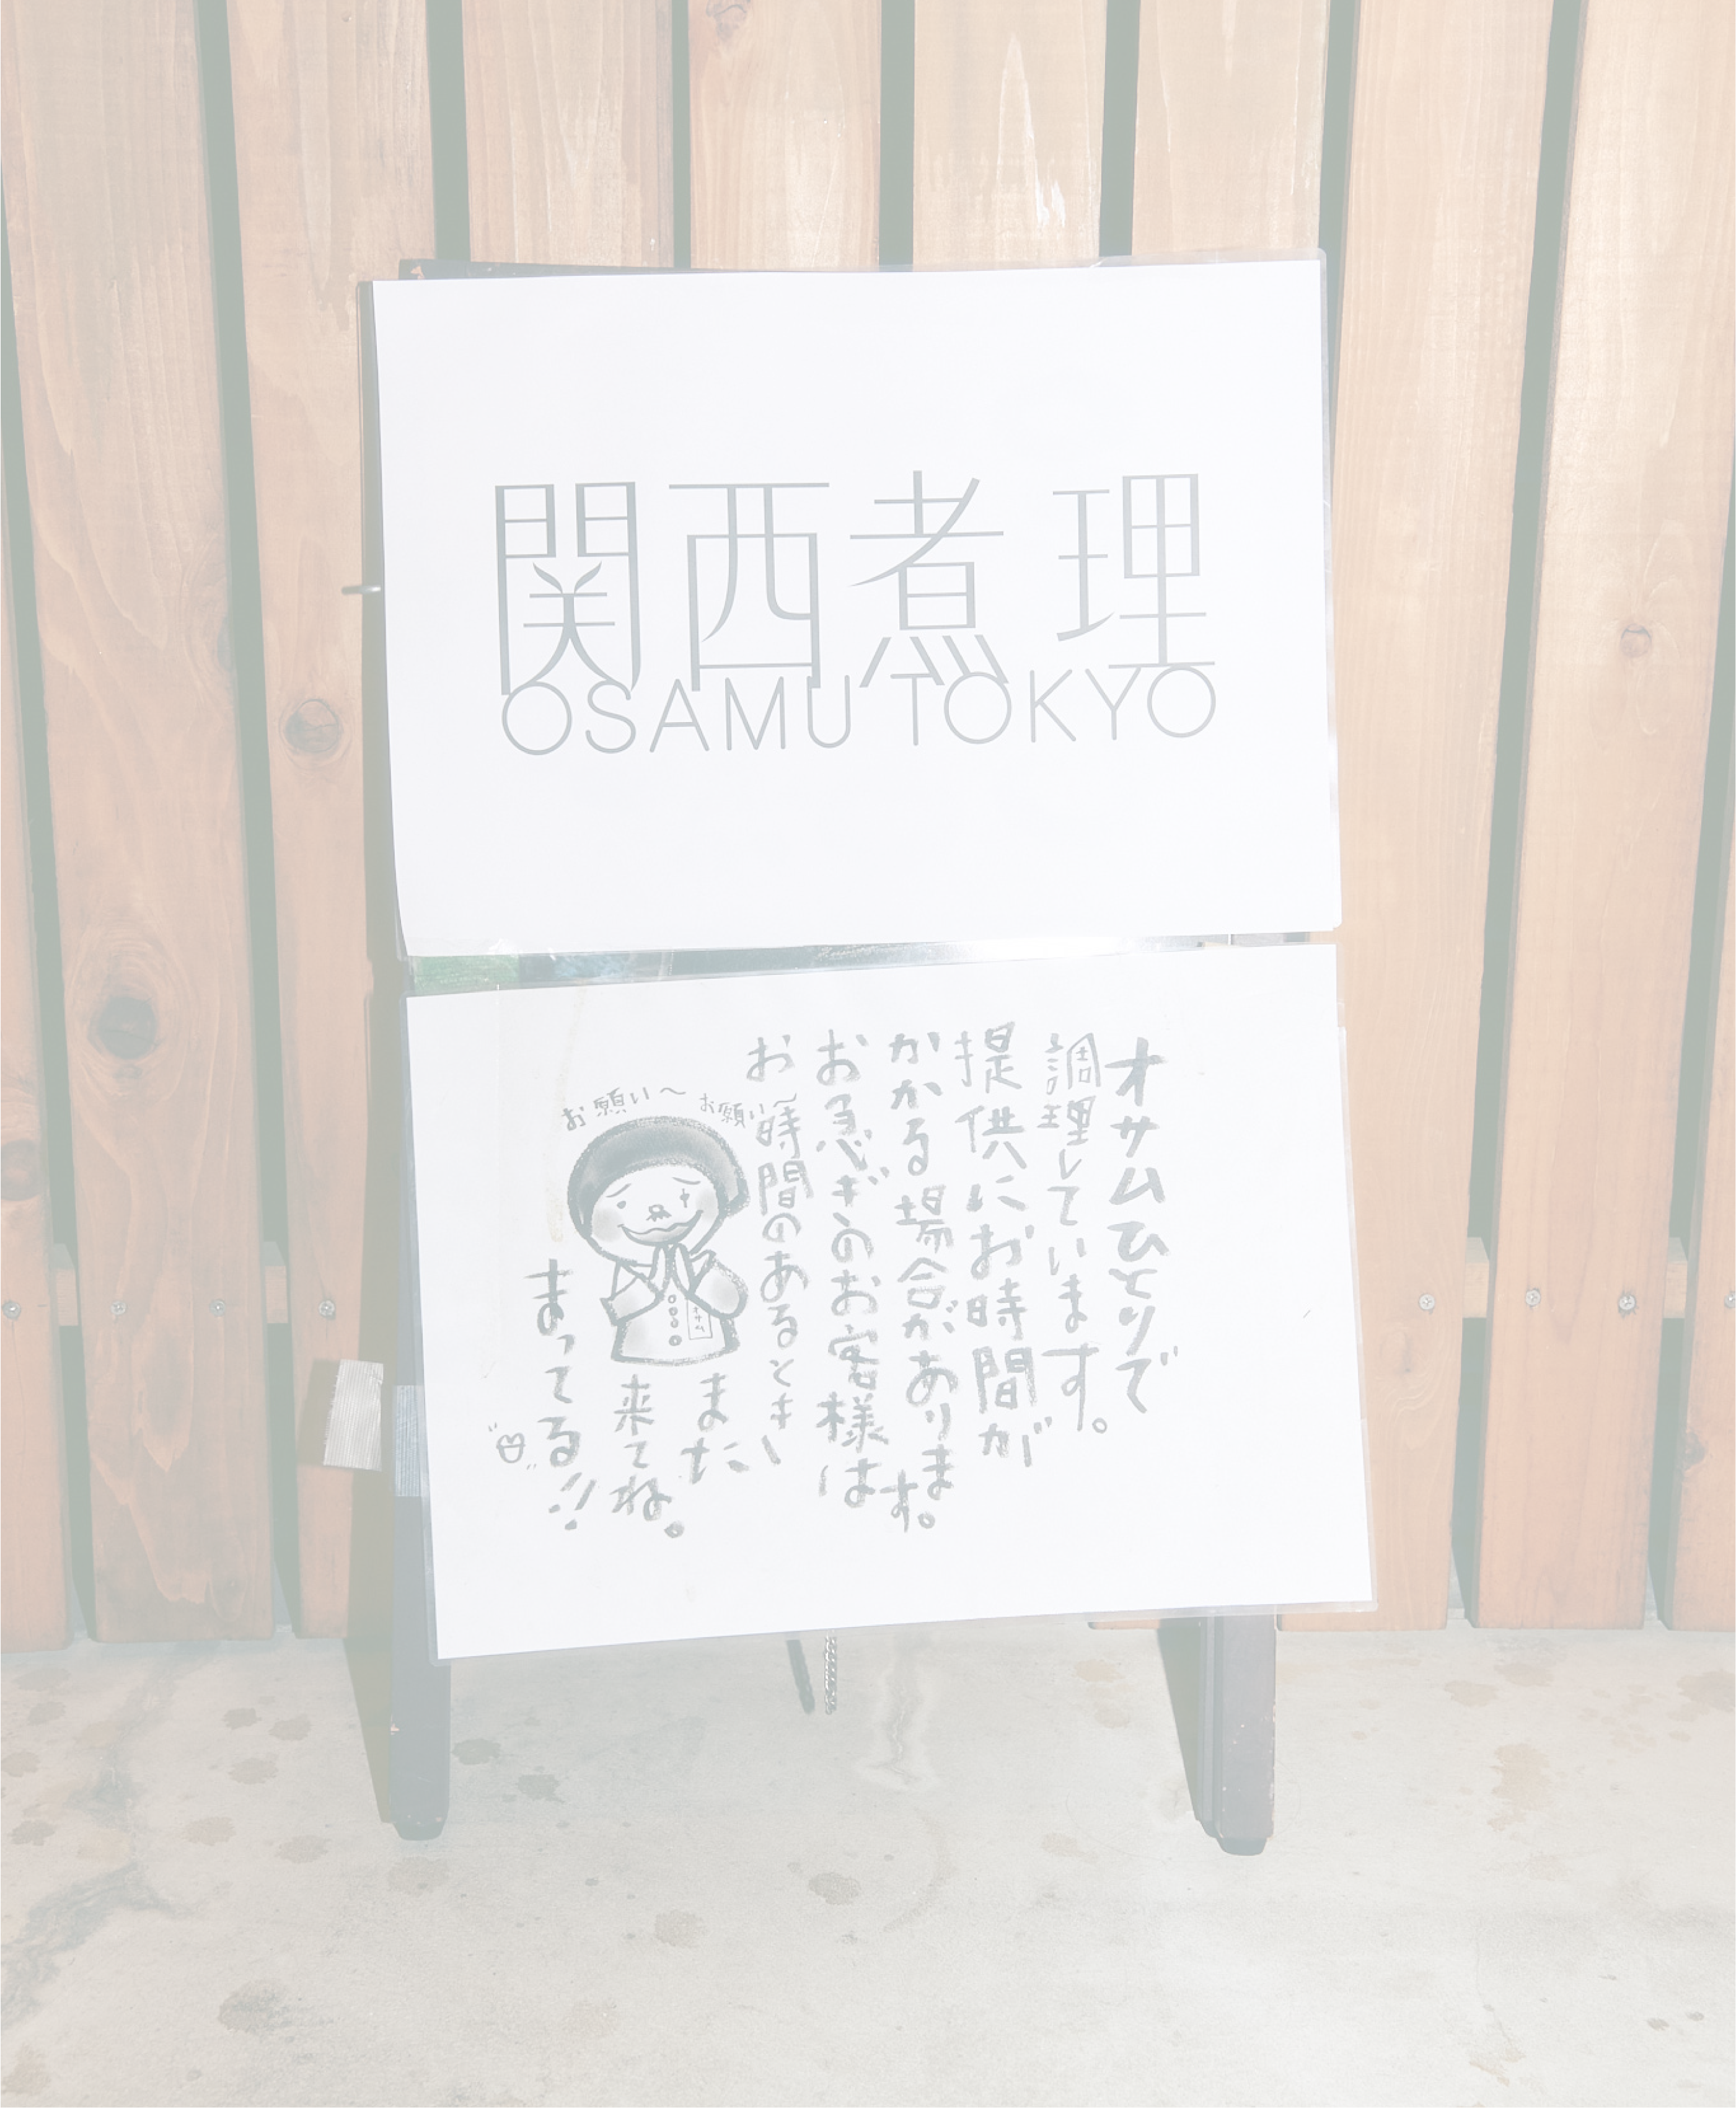 関西煮理
OSAMU TOKYO
オサムひとりで
調理しています。
提供にお時間が
かかる場合があります。
お急ぎのお客様は
お時間のあるとき
また
来てね。
まってる!!
お願い〜
お願い〜
オサム